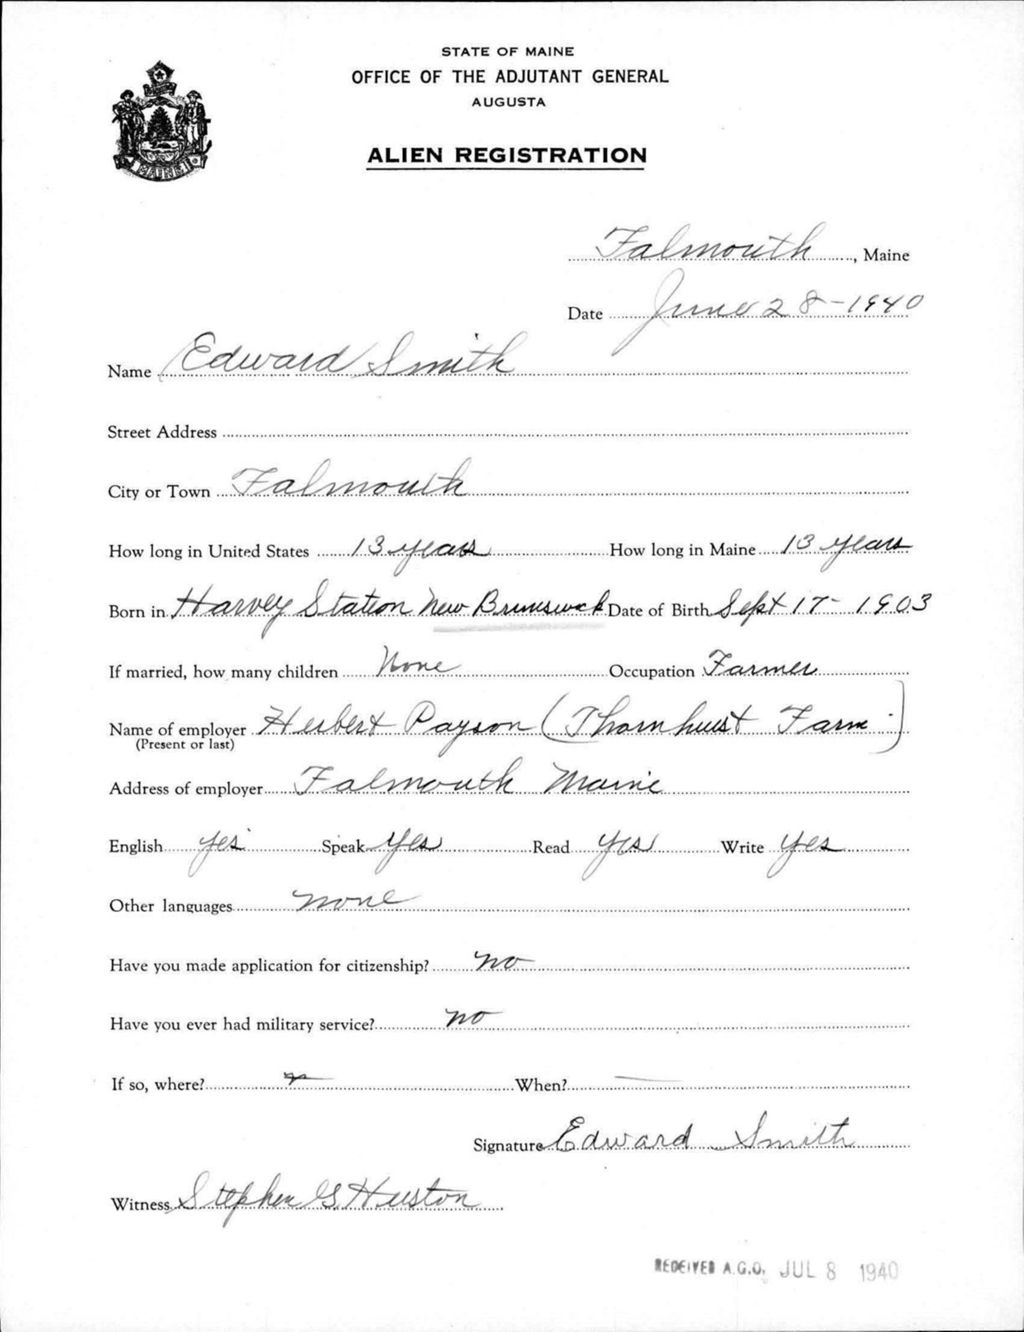 STATE OF MAINE
OFFICE OF THE ADJUTANT GENERAL
AUGUSTA
ALIEN REGISTRATION
MAINE
Falmouth, Maine
Date June 28-1940
Name Edward Smith
Street Address
City or Town Falmouth
How long in United States 13 years How long in Maine 13 years
Born in Harvey Station New Brunswick Date of Birth Sept 17- 1903
If married, how many children None Occupation Farmer
Name of employer Herbert Payson (Thornhurst Farm)
(Present or last)
Address of employer Falmouth Maine
English yes Speak yes Read yes Write yes
Other languages none
Have you made application for citizenship? no
Have you ever had military service? no
If so, where? When? —
Signature Edward Smith
Witness Stephen G Huston
RECEIVED A.G.O. JUL 8 1940